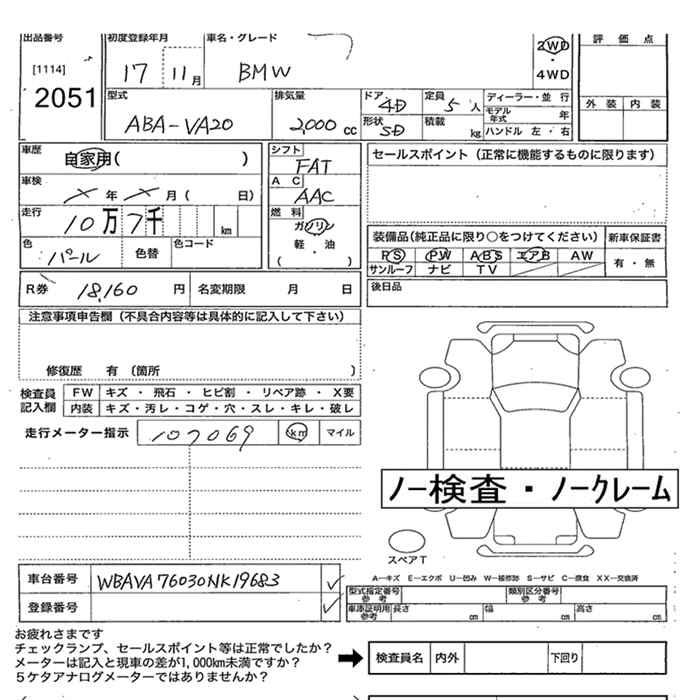 出品番号 初度登録年月 車名・グレード 2WD 評価点
[1114] 17 11月 BMW ・4WD
2051 外装 内装
型式 排気量 ドア 4D 定員 5人 ディーラー・並行
ABA-VA20 2,000cc 形状 5D 積載 kg モデル年式 年
ハンドル 左・右
車歴 自家用( ) シフト FAT セールスポイント(正常に機能するものに限ります)
車検 × 年 × 月( 日) AC AAC
走行 10万7千 km 燃料 ガソリン 装備品(純正品に限り○をつけてください) 新車保証書
色 パール 色替 色コード 軽・油 PS PW ABS エアB AW 有・無
( ) サンルーフ ナビ TV
R券 18,160 円 名変期限 月 日 後日品
注意事項申告欄(不具合内容等は具体的に記入して下さい)
修復歴 有〔箇所 〕
検査員記入欄 FW キズ・飛石・ヒビ割・リペア跡・X要
内装 キズ・汚レ・コゲ・穴・スレ・キレ・破レ
走行メーター指示 107069 km マイル
ノー検査・ノークレーム
スペアT
車台番号 WBAVA76030NK19683
A―キズ E―エクボ U―凹み W―補修跡 S―サビ C―腐食 XX―交換済
型式指定番号 参考 類別区分番号 参考
登録番号 車庫証明用参考 長さ cm 幅 cm 高さ cm
お疲れさまです
チェックランプ、セールスポイント等は正常でしたか?
メーターは記入と現車の差が1,000km未満ですか?
5ケタアナログメーターではありませんか?
検査員名 内外 下回り